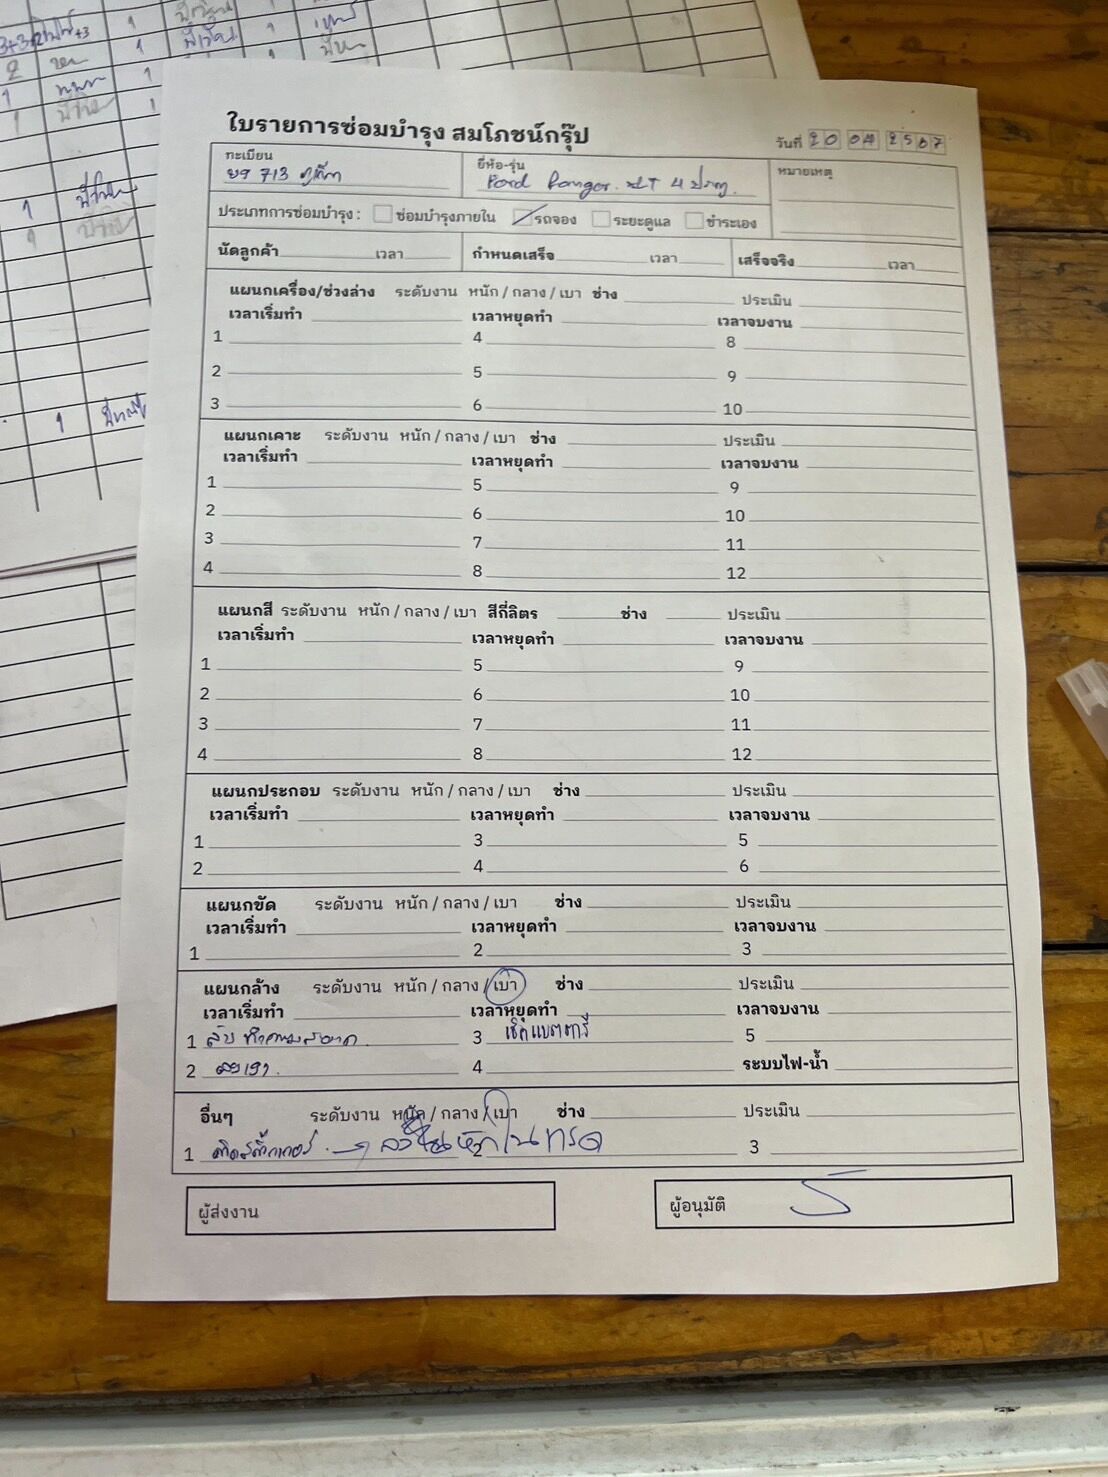 ใบรายการซ่อมบำรุง สมโภชน์กรุ๊ป
วันที่ 20 04 2567
ทะเบียน
ยี่ห้อ-รุ่น
หมายเหตุ
713 ภูเก็ต
Ford Ranger XLT 4 ประตู
ประเภทการซ่อมบำรุง : ซ่อมบำรุงภายใน รถจอง ระยะดูแล ชำระเอง
นัดลูกค้า เวลา กำหนดเสร็จ เวลา เสร็จจริง เวลา
แผนกเครื่อง/ช่วงล่าง ระดับงาน หนัก / กลาง / เบา ช่าง ประเมิน
เวลาเริ่มทำ เวลาหยุดทำ เวลาจบงาน
1 4 8
2 5 9
3 6 10
แผนกเคาะ ระดับงาน หนัก / กลาง / เบา ช่าง ประเมิน
เวลาเริ่มทำ เวลาหยุดทำ เวลาจบงาน
1 5 9
2 6 10
3 7 11
4 8 12
แผนกสี ระดับงาน หนัก / กลาง / เบา สีกี่ลิตร ช่าง ประเมิน
เวลาเริ่มทำ เวลาหยุดทำ เวลาจบงาน
1 5 9
2 6 10
3 7 11
4 8 12
แผนกประกอบ ระดับงาน หนัก / กลาง / เบา ช่าง ประเมิน
เวลาเริ่มทำ เวลาหยุดทำ เวลาจบงาน
1 3 5
2 4 6
แผนกขัด ระดับงาน หนัก / กลาง / เบา ช่าง ประเมิน
เวลาเริ่มทำ เวลาหยุดทำ เวลาจบงาน
1 2 3
แผนกล้าง ระดับงาน หนัก / กลาง / เบา ช่าง ประเมิน
เวลาเริ่มทำ เวลาหยุดทำ เวลาจบงาน
1 ทำความสะอาด 3 เช็คแบตตารี่ 5
2 ลงเงา 4 ระบบไฟ-น้ำ
อื่นๆ ระดับงาน หนัก / กลาง / เบา ช่าง ประเมิน
1 ติดสติ๊กเกอร์ 2 3
ผู้ส่งงาน
ผู้อนุมัติ